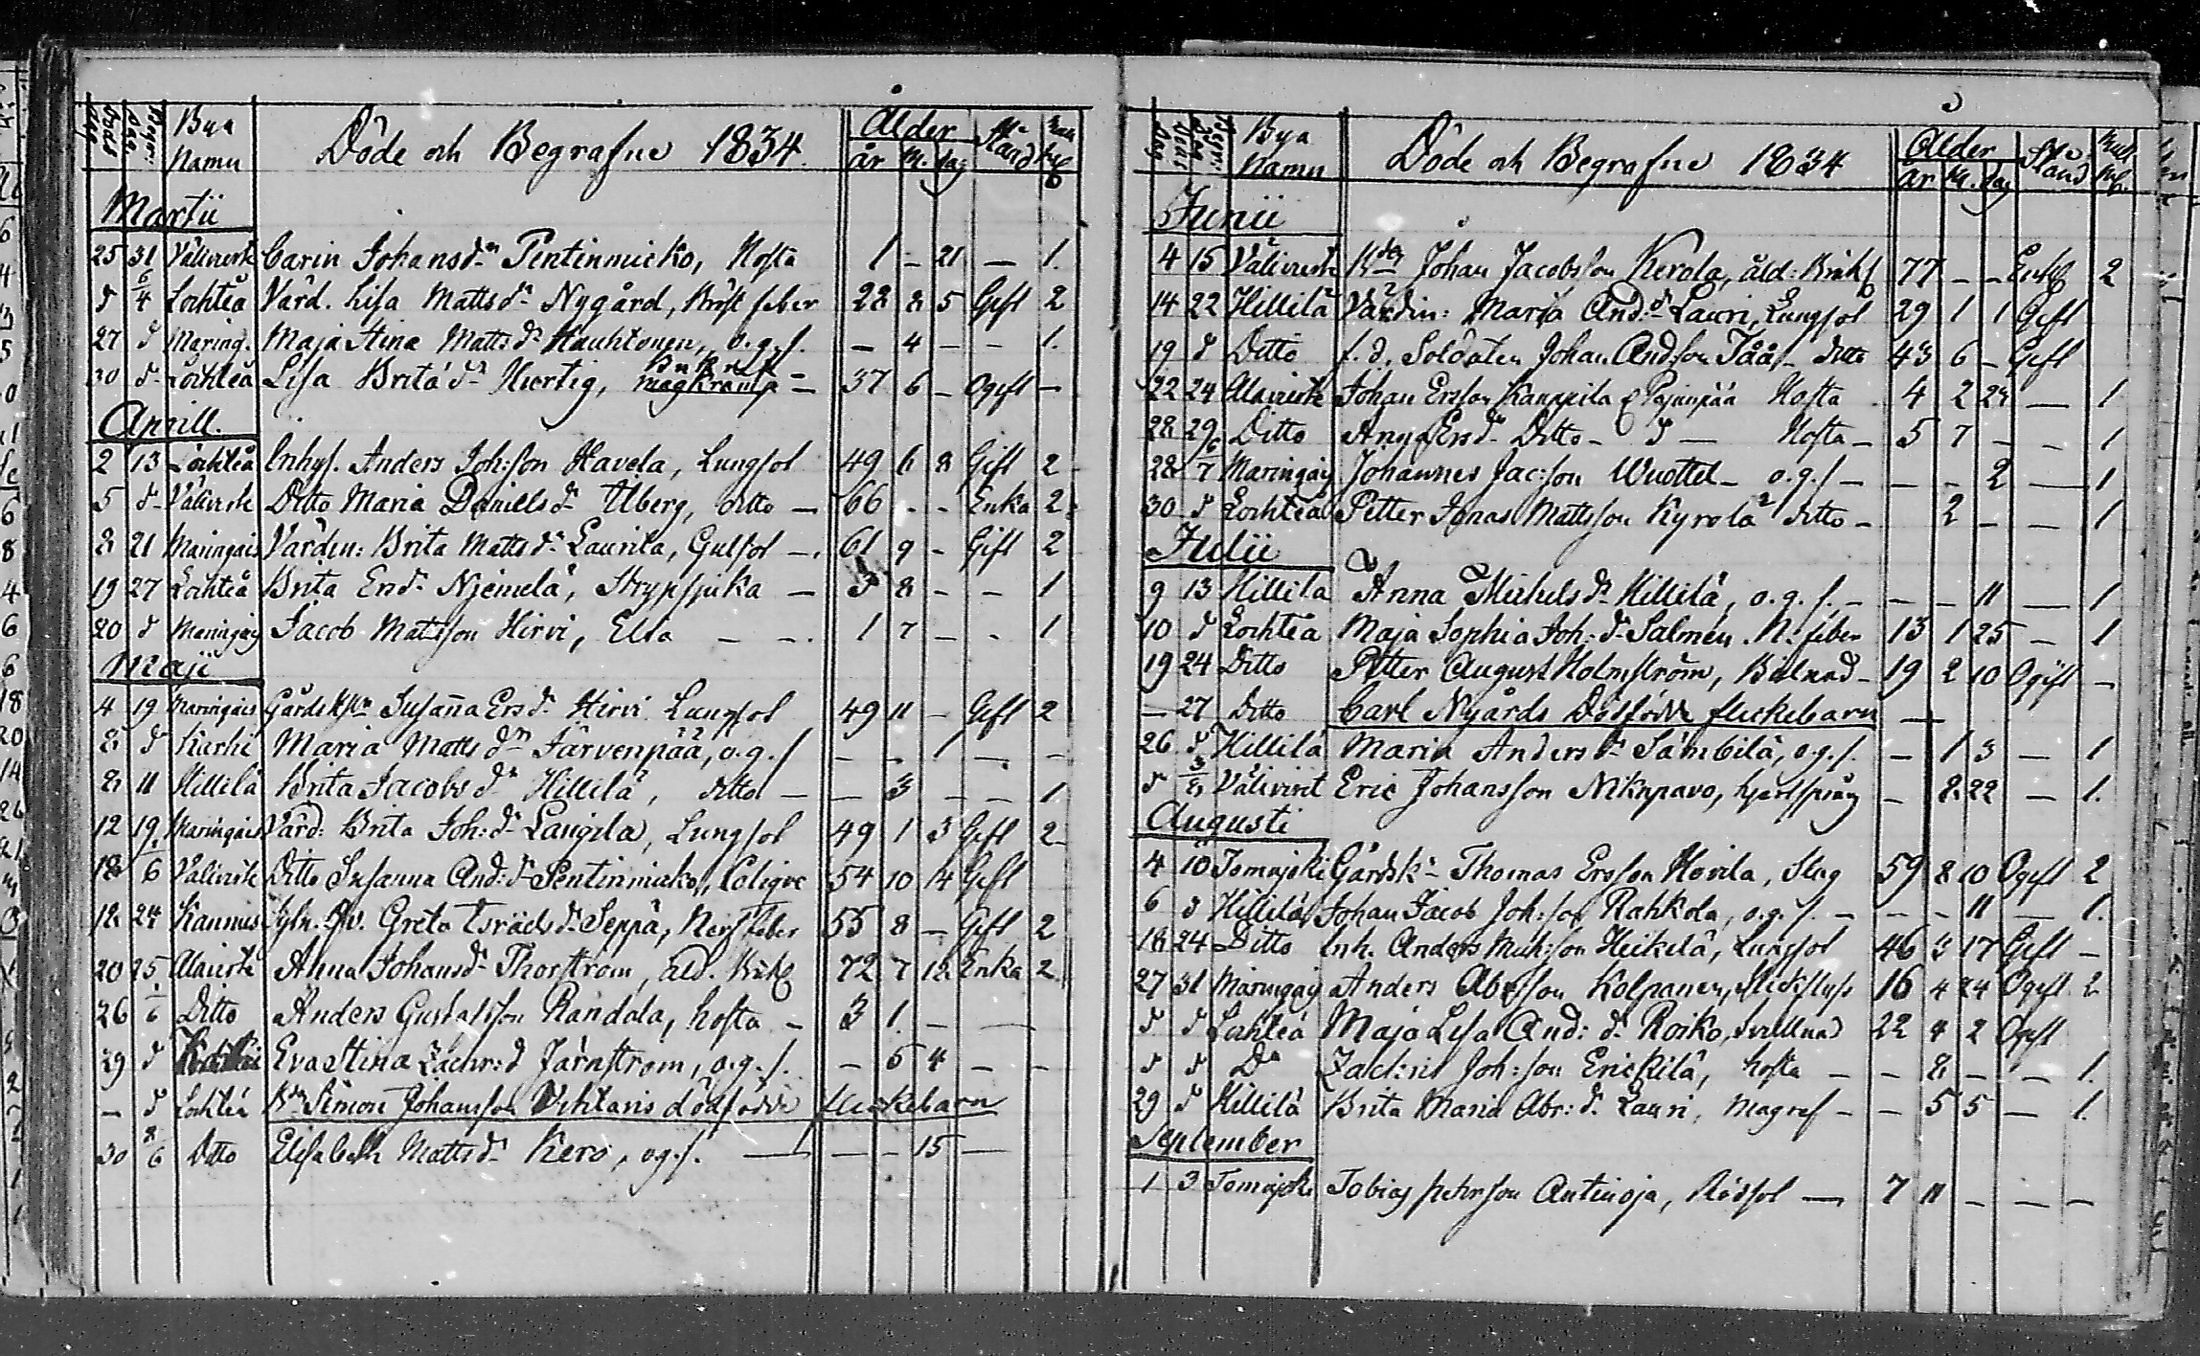 Bya Namn Döde och Begrafne 1834. Ålder år M. dag Stånd
Martii
25 31 Välivirk Carin Johansdr Pentinmicko, Hosta 1 - 21 - 1.
d 6/4 Lochteå Värd. Lisa Matts dr Nygård, Bröstfeber 28 8 5 Gift 2
27 d Maring. Maja Stina Matts dr Hauhtonen, o.g.s. - 4 - - 1.
30 d Lochteå Lisa Brita dr Hertig, magkramp - 37 6 - Ogift -
Aprill.
2 13 Lochteå Inhys. Anders Joh:son Havela, Lungsot 49 6 8 Gift 2
5 d Välivirk Ditto Maria Daniells dr Ulberg, ditto - 66 - - Enka 2
8 21 Maringais Värdin: Brita Matts dr Laurila, Gulsot - 61 9 - Gift 2
19 27 Lochteå Brita Er dr Njemelä, Strypsjuka - 3 8 - - 1
20 d Maringais Jacob Matsson Hirvi, Elta - - 1 7 - - 1
Maji
4 19 Maringais Gårdsk Susanna Ers dr Hirvi Lungsot 49 11 - Gift 2
8 d Karhi Maria Matts dr Järvenpää, o.g.s - - 1 - -
8 11 Hillilä Brita Jacobs dr Hillilä, ditto - - 3 - - 1
12 19 Maringais Värd: Brita Joh: dr Langila, Lungsot 49 1 3 Gift 2
18 1/6 Välivirk Ditto Susanna And: dr Pentinmicko, Colique 54 10 14 Gift
12 24 Kannus Greta Israels dr Seppä, Nerffeber 55 8 - Gift 2
20 25 Alavirk Anna Johans dr Thorström, åld. Bräkl 72 7 18 Enka 2
26 1/6 Ditto Anders Gustafsson Randala, hosta - 3 1 - -
29 d Eva Stina Zachr: d Järnström, o.g.s. - 5 4 - -
- d Lochteå Simon Johansson Vehtaris dödfödde flickebarn
30 8/6 Ditto Elisabeth Matts dr Kero, o.g.s. - - - 15 -
Bya Namn Döde och Begrafne 1834 Ålder år M. dag Stånd
Junii
4 15 Välivirk Johan Jacobsson Kerola, åld: Bräkl 77 - - Enkl 2
14 22 Hillilä Värdin: Maria And: dr Lauri, Lungsot 29 1 1 Gift
19 d Ditto f. d. Soldaten Johan Andsson Tåå - ditto 43 6 - Gift
22 24 Alavirk Johan Ersson Kauppila Pajunpää Hosta 4 2 24 - 1
28 29 Ditto Anna Ers dr Ditto - d - Hosta - 5 7 - - 1
28 6/7 Maringais Johannes Jac:son Wuottel - o.g.s - - - 2 - 1
30 d Lochteå Petter Jonas Mattsson Kyrolä ditto - 2 - - 1
Julii
9 13 Hillilä Anna Michels dr Hillilä, o.g.s. - - - 11 - 1
10 d Lochteå Maja Sophia Joh: dr Salmén. N. feber 13 1 25 - 1
19 24 Ditto Petter August Holmström, 19 2 10 Ogift -
- 27 Ditto Carl Nygårds Dödfödde flickebarn -
26 d Hillilä Maria Anders dr Sämbilä, o.g.s. - 1 3 - 1
d 3/8 Välivirk Eric Johansson Niknpavo, hjertsprång - 8 22 - 1.
Augusti
4 10 Tomujoki Gårdsk Thomas Ersson Hovila, Slag 59 8 10 Ogift 2
6 d Hillilä Johan Jacob Joh:son Rahkola, o.g.s. - - - 11 - 1.
18 24 Ditto Inh. Anders Mich:son Heikelä, Lungsot 46 3 17 Gift -
27 31 Maringais Anders Abrsson Kolpanen, 16 4 24 Ogift 2
d d Lochteå Maja Lisa And: dr Roiko, svullnad 22 4 2 Ogift
d d Do Zachris Joh:son Erickilä, hosta - - 8 - - 1.
29 d Hillilä Brita Maria Abr: dr Lauri, Magref - - 5 5 - 1.
September
1 3 Tomujoki Tobias Petersson Antinoja, Rödsot - 7 11 - - -